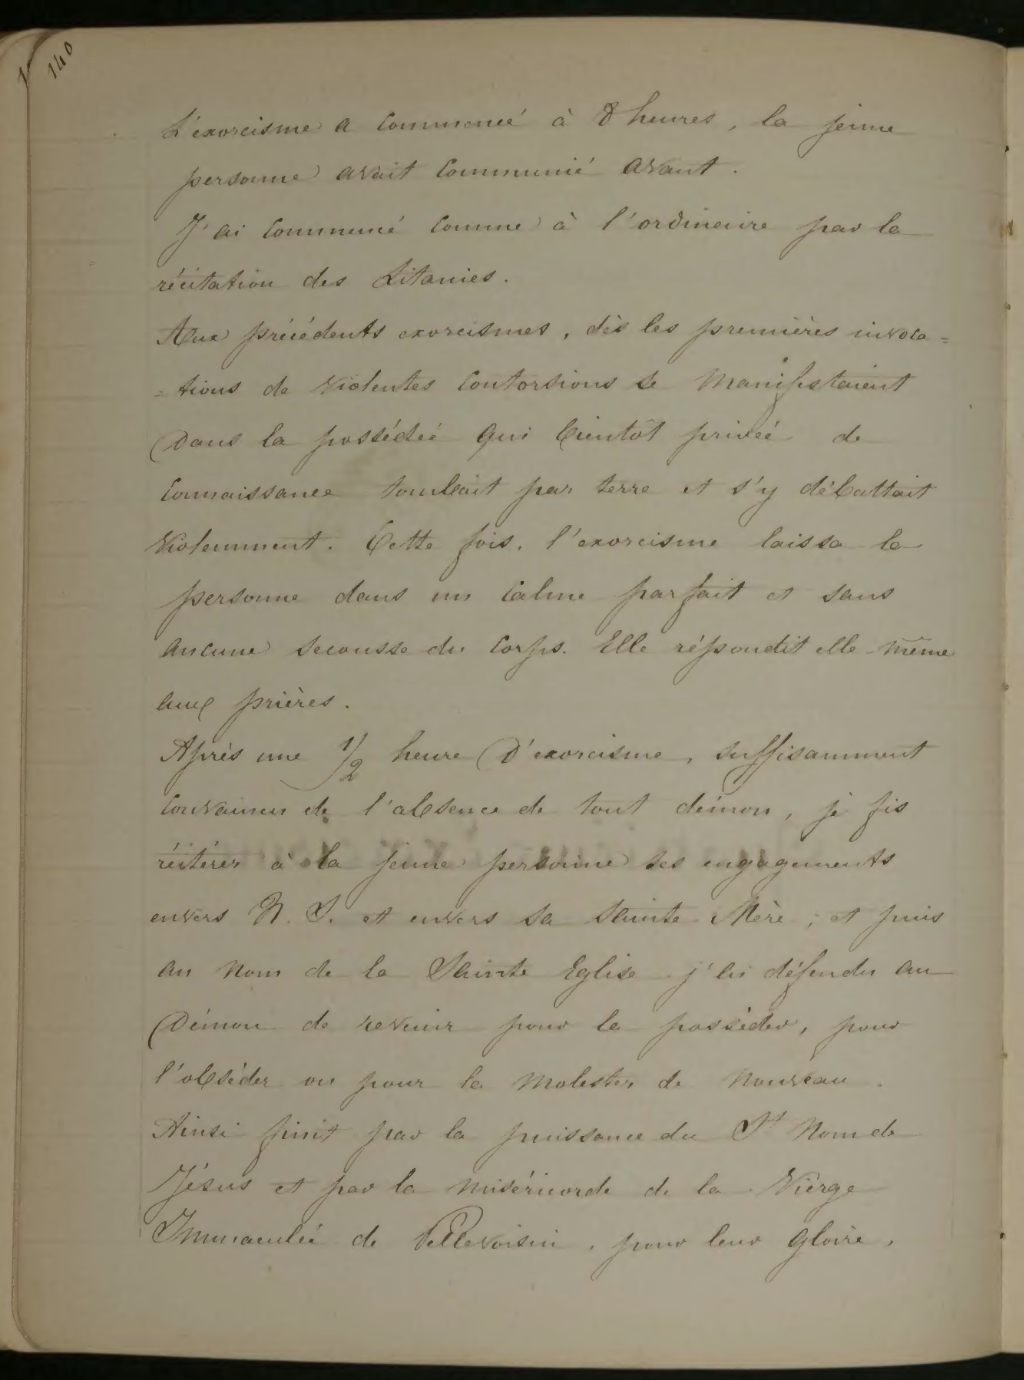 140
L'exorcisme a commencé à 8 heures, la jeune
personne avait communié avant.
J'ai commencé comme à l'ordinaire par la
récitation des Litanies.
Aux précédents exorcismes, dès les premières invoca=
=tions de violentes contorsions se manifestaient
Dans la possédée qui bientôt privée de
connaissance tombait par terre et s'y débattait
violemment. Cette fois, l'exorcisme laissa la
personne dans un calme parfait et sans
aucune secousse du corps. Elle répondit elle-même
aux prières.
Après une 1/2 heure D'exorcisme, suffisamment
convaincu de l'absence de tout démon, je fis
réitérer à la jeune personne ses engagements
envers N. S. et envers sa Sainte Mère ; et puis
au nom de la Sainte Eglise j'ai défendu au
Démon de revenir pour la posséder, pour
l'obséder ou pour la molester de nouveau.
Ainsi finit par la puissance du St Nom de
Jésus et par la miséricorde de la Vierge
Immaculée de Pellevoisin, pour leur gloire,